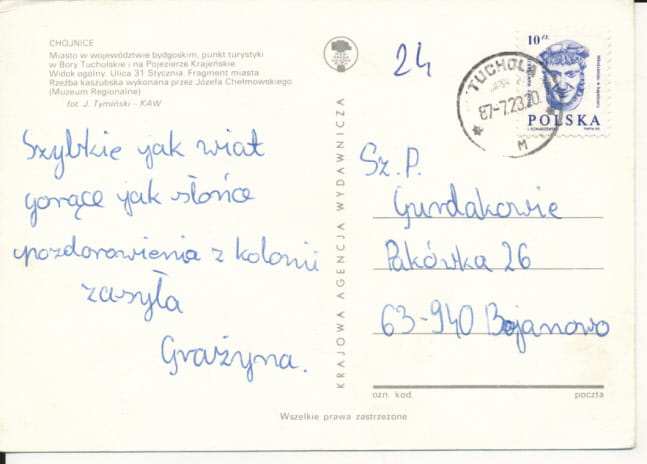 CHOJNICE
Miasto w województwie bydgoskim, punkt turystyki
w Bory Tucholskie i na Pojezierze Krajeńskie.
Widok ogólny. Ulica 31 Stycznia. Fragment miasta.
Rzeźba kaszubska wykonana przez Józefa Chełmowskiego
(Muzeum Regionalne)
fot. J. Tymiński - KAW
Szybkie jak wiatr
gorące jak słońce
pozdorowienia z kolonii
zasyła
Grażyna.
KRAJOWA AGENCJA WYDAWNICZA
24
TUCHOLA
87-7.23.20
M
10 ZŁ
POLSKA
Sz. P.
Gurdakowie
Pakówka 26
63-940 Bojanowo
ozn. kod.
poczta
Wszelkie prawa zastrzeżone